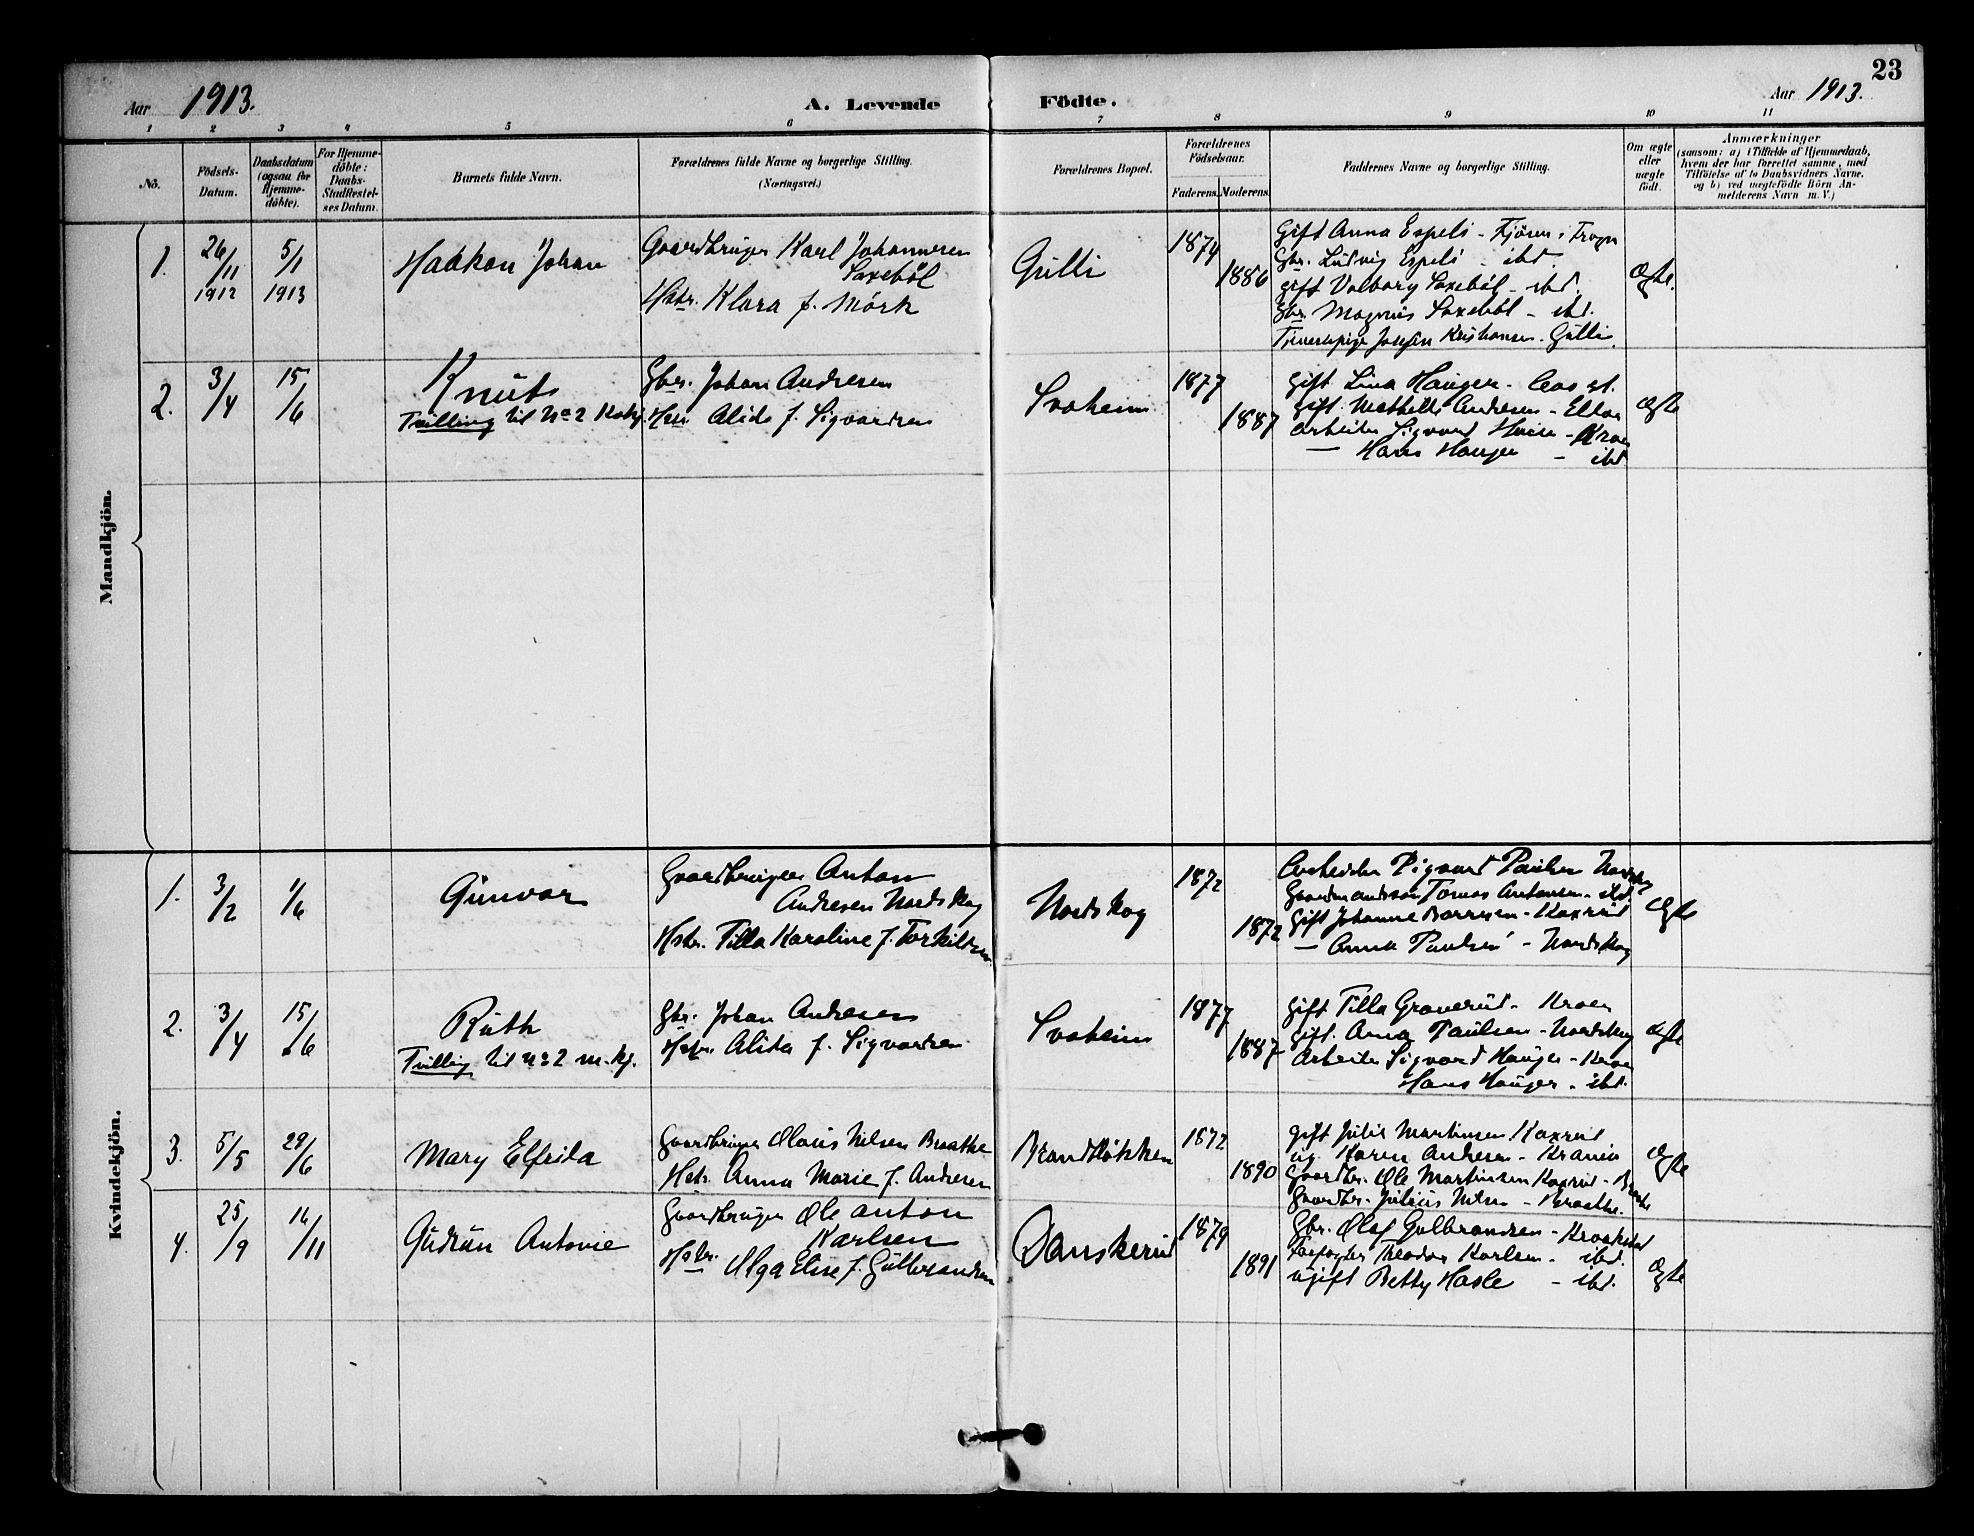 23
Aar 1913. A. Levende Födte. Aar 1913.
1 2 3 4 5 6 7 8 9 10 11
No.
Födsels-Datum.
Daabsdatum (ogsaa for Hjemme-döbte).
For Hjemme-döbte: Daabs-Stadfæstel-ses Datum.
Barnets fulde Navn.
Forældrenes fulde Navne og borgerlige Stilling.
(Næringsvei.)
Forældrenes Bopæl.
Forældrenes Födselsaar.
Faderens. Moderens.
Faddernes Navne og borgerlige Stilling.
Om ægte eller uægte födt.
Anmærkninger
(saasom: a) i Tilfælde af Hjemmedaab,
hvem der har forrettet samme, med
Tilföielse af to Daabsvidners Navne,
og b) ved uægtefödte Börn An-
melderens Navn m. V.)
Mandkjön.
1. 26/11 1912 5/1 1913 Haakon Johan
Gaardbruger Karl Johannesen
Saxeböl
Hstr. Klara f. Mörk
Gulli
1874
1886
gift Anna Espeli - Fjöser, Frogn
Gbr. Ludvig Espeli - ibd.
gift Valborg Saxeböl - ibd.
Gbr. Magnus Saxeböl - ibd.
Tjenestepige Josefin Kristiansen. Gulli
Ægte.
2. 3/4 15/6 Knut
Tvilling til No 2
Gbr. Johan Andresen
Alida f. Sigvardsen
Svoheim
1877
1887
gift Lina Hauger -
gift Mathilde Andresen -
Arbeider Sigvard - Kroer
— Hans Hauger - ibd
Ægte
Kvindekjön.
1. 3/2 1/6 Gunvor
Gaardbruger Anton
Andresen Nordskog
Hstr. Tilla Karoline f. Torkildsen
Nordskog
1872
1872
Arbeider Sigvard Paulsen Nordskog
Gaardmandssön Tomas Antonsen - ibd.
Gift Johanne - Kaxrud
— Anna Paulsen - Nordskog
Ægte
2. 3/4 15/6 Ruth
Tvilling til no 2 m.kj.
Gbr. Johan Andresen
Hstr. Alida f. Sigvardsen
Svoheim
1877
1887
gift Tilla Graverud - Kroer
gift. Anna Paulsen - Nordskog
Arbeider Sigvard Hauger - Kroer
Hans Hauger - ibd.
Ægte
3. 5/5 29/6 Mary Elfrida
Gaardbruger Olaus Nilsen Braathe
Hstr. Anna Marie f. Andresen
Brandlökken
1872
1890
gift Julie Martinsen Kaxrud
ug. Karen Andresen -
Gaardbr. Ole Martinsen Kaxrud -
Gaardbr. Julius Nilsen - Braathe.
Ægte
4. 25/9 16/11 Gudrun Antonie
Gaardbruger Ole Anton
Karlsen
Hstr. Olga Elise f. Gulbrandsen
Danskerud
1879
1891
Gbr. Olaf Gulbrandsen - Kraakstad
Theodor Karlsen - ibd.
ugift Betty Hasle - ibd.
Ægte